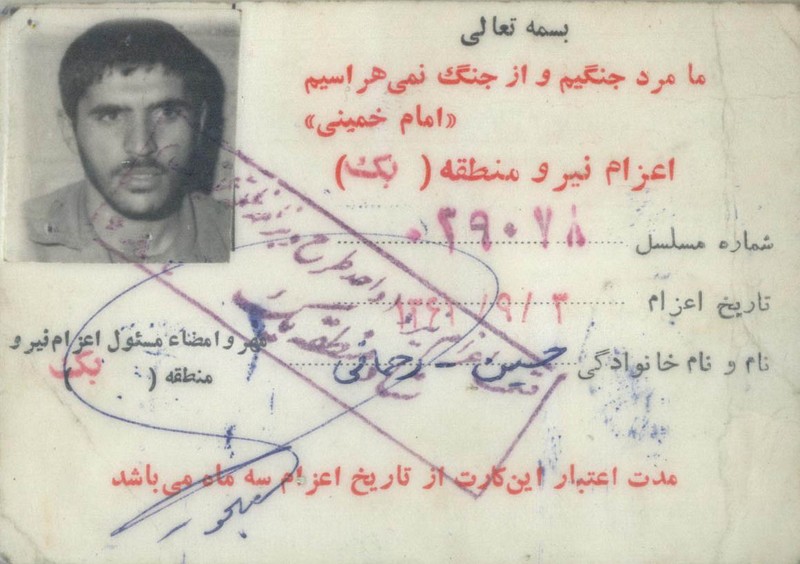 بسمه تعالی
ما مرد جنگیم و از جنگ نمی‌هراسیم
«امام خمینی»
اعزام نیرو منطقه ( یک )
شماره مسلسل ۰۲۹۰۷۸
تاریخ اعزام ۱۳۶۱/۹/۳
نام و نام خانوادگی حسین - رحمانی
مهر و امضاء مسئول اعزام نیرو
منطقه ( یک )
مدت اعتبار این کارت از تاریخ اعزام سه ماه می‌باشد
واحد طرح و
منطقه یک